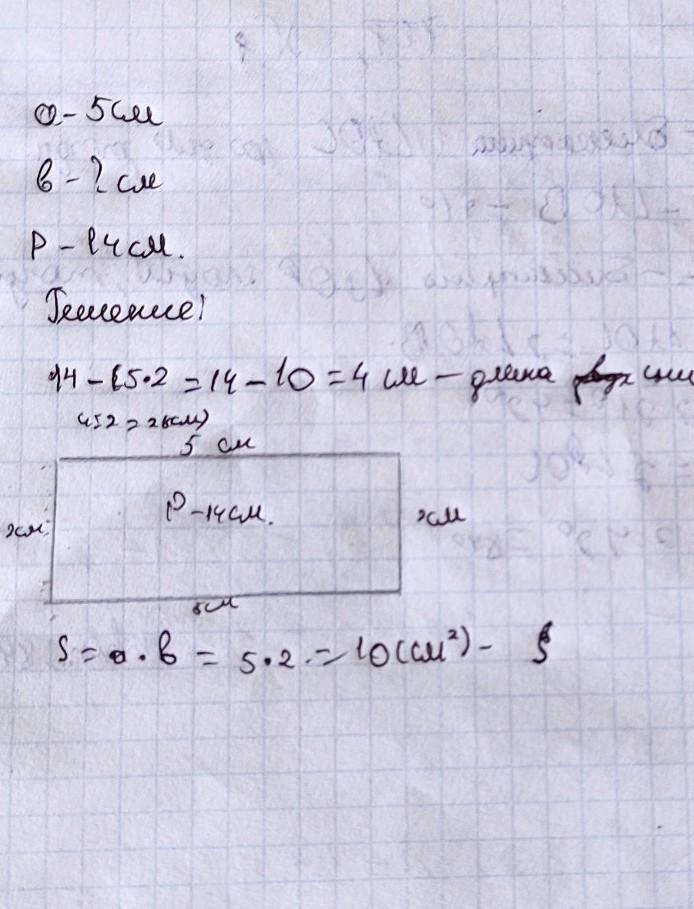 а - 5 см
в - ? см
P - 14 см.
Решение:
14 - (5·2 = 14 - 10 = 4 см - длина
4:2 = 2 (см)
5 см
P - 14 см.
2см
2см
5см
S = а · в = 5·2 = 10 (см²) - S